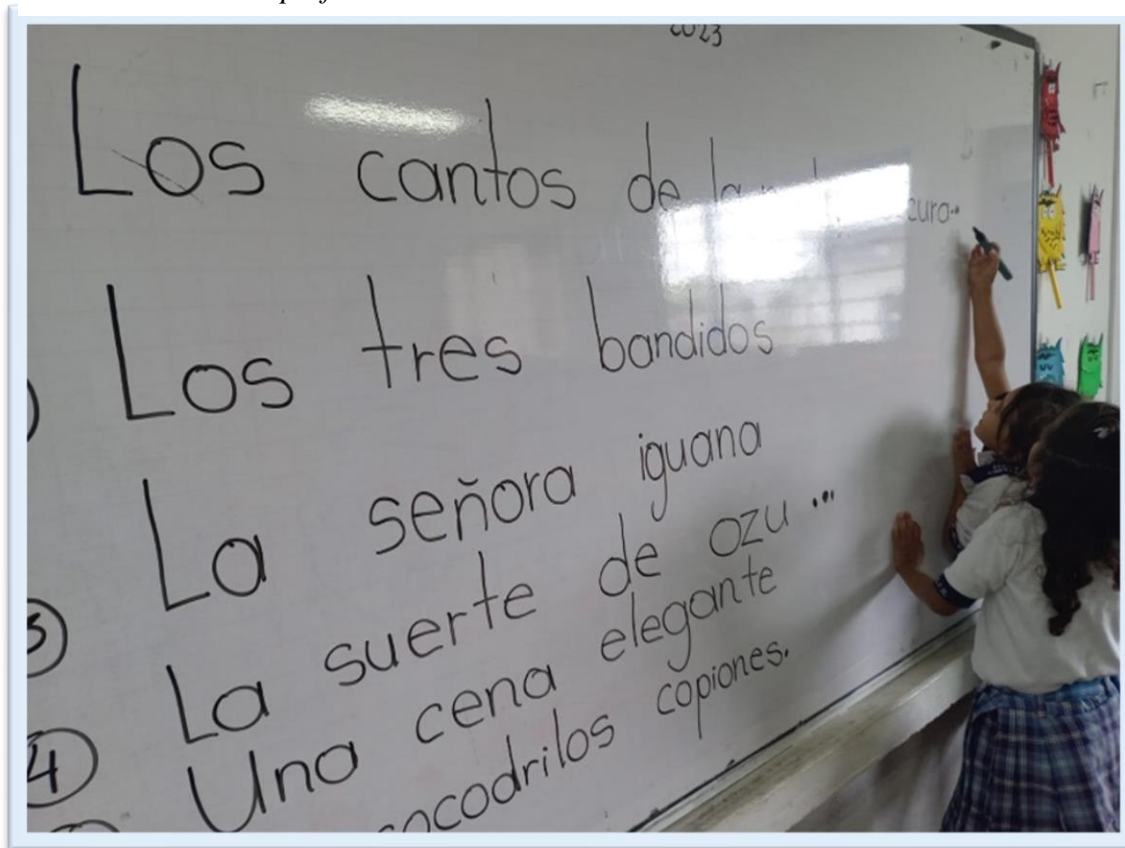 2023
Los cantos de la
Los tres bandidos
3 La señora iguana
4 La suerte de ozu...
Una cena elegante
cocodrilos copiones.